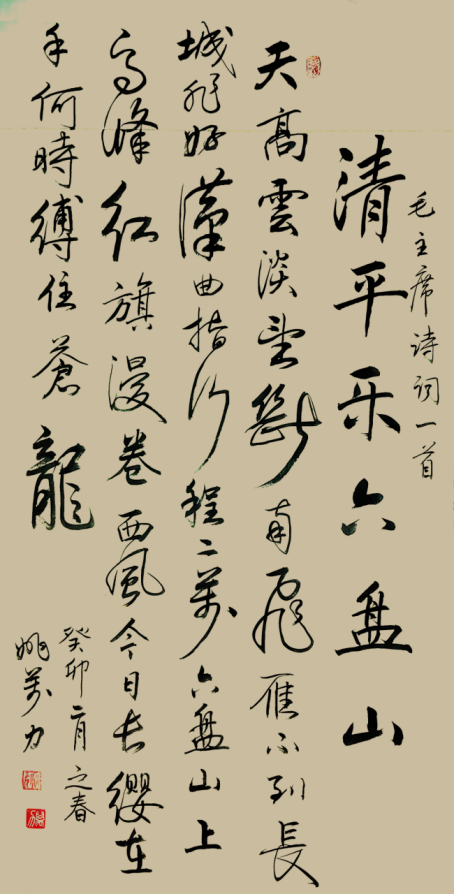 毛主席诗词一首
清平乐六盘山
天高雲淡望斷南飛雁不到長
城非好漢曲指行程二萬六盘山上
高峰红旗漫卷西風今日长纓在
手何時縛住蒼龍
癸卯二月之春
姚萬力